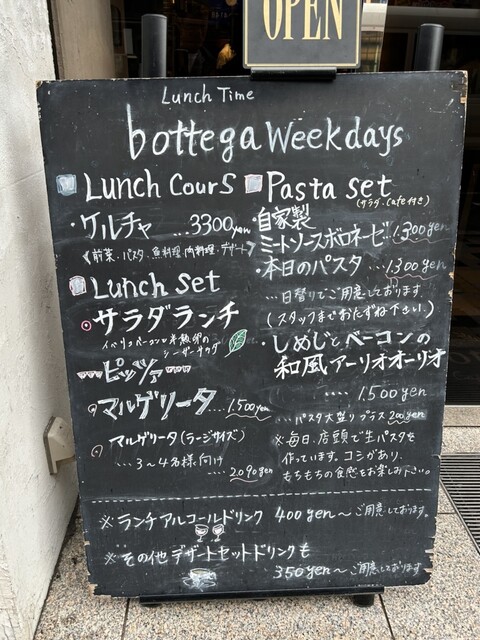 OPEN
Lunch Time
bottega Weekdays
Lunch CourS
・ケルチャ ...3300yen
《前菜・パスタ・魚料理・肉料理・デザート》
Lunch Set
◎サラダランチ
イベリコベーコンと半熟卵の
シーザーサラダ
ピッツァ
◎マルゲリータ...1500yen
◎マルゲリータ(ラージサイズ)
...3〜4名様向け
...2090yen
Pasta set
(サラダ、Cafe付き)
・自家製
ミートソースボロネーゼ...1300yen
・本日のパスタ...1300yen
...日替りでご用意しております。
(スタッフまでおたずね下さい。)
・しめじとベーコンの
和風アーリオオーリオ
....1500yen
...パスタ大盛りプラス200yen
※毎日、店頭で生パスタを
作っています。コシがあり、
もちもちの食感をお楽しみ下さい。
※ランチアルコールドリンク 400yen〜ご用意しております。
※その他デザートセットドリンクも
350yen〜ご用意しております